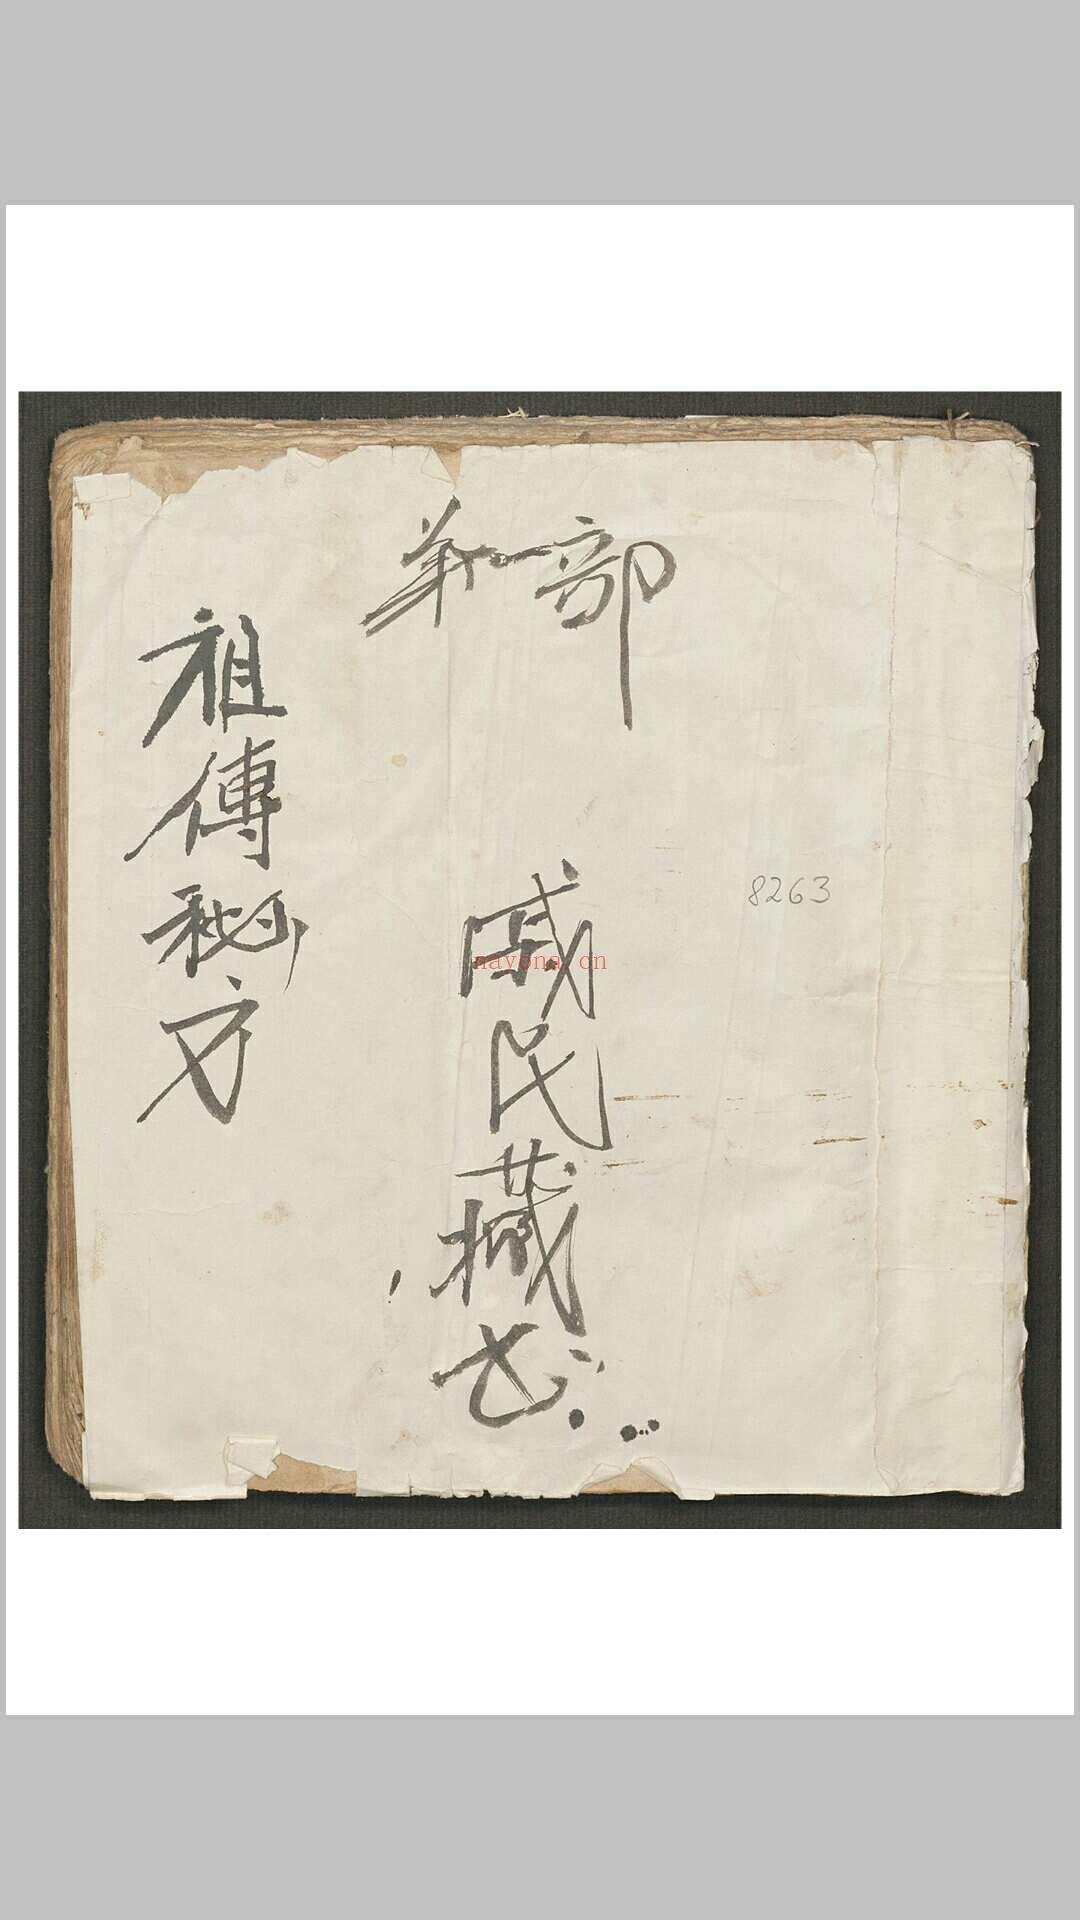 第一部
戚氏藏書
祖傳秘方
8263
nayona.cn